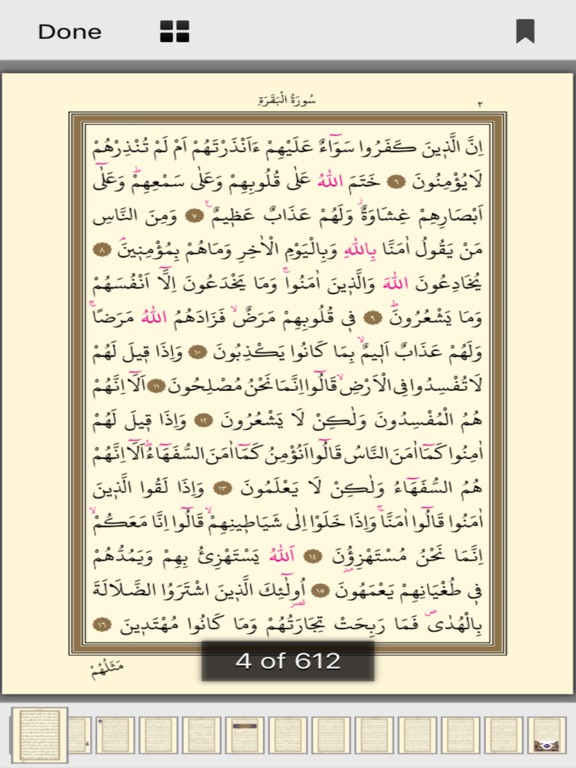 Done
سُورَةُ الْبَقَرَةِ
٢
اِنَّ الَّذ۪ينَ كَفَرُوا سَوَٓاءٌ عَلَيْهِمْ ءَاَنْذَرْتَهُمْ اَمْ لَمْ تُنْذِرْهُمْ
لَا يُؤْمِنُونَ ﴿٦﴾ خَتَمَ اللّٰهُ عَلٰى قُلُوبِهِمْ وَعَلٰى سَمْعِهِمْۜ وَعَلٰٓى
اَبْصَارِهِمْ غِشَاوَةٌۘ وَلَهُمْ عَذَابٌ عَظ۪يمٌ۟ ﴿٧﴾ وَمِنَ النَّاسِ
مَنْ يَقُولُ اٰمَنَّا بِاللّٰهِ وَبِالْيَوْمِ الْاٰخِرِ وَمَا هُمْ بِمُؤْمِن۪ينَۢ ﴿٨﴾
يُخَادِعُونَ اللّٰهَ وَالَّذ۪ينَ اٰمَنُواۚ وَمَا يَخْدَعُونَ اِلَّٓا اَنْفُسَهُمْ
وَمَا يَشْعُرُونَۜ ﴿٩﴾ ف۪ي قُلُوبِهِمْ مَرَضٌۙ فَزَادَهُمُ اللّٰهُ مَرَضًاۚ
وَلَهُمْ عَذَابٌ اَل۪يمٌۙ بِمَا كَانُوا يَكْذِبُونَ ﴿١٠﴾ وَاِذَا ق۪يلَ لَهُمْ
لَا تُفْسِدُوا فِي الْاَرْضِۙ قَالُٓوا اِنَّمَا نَحْنُ مُصْلِحُونَ ﴿١١﴾ اَلَٓا اِنَّهُمْ
هُمُ الْمُفْسِدُونَ وَلٰكِنْ لَا يَشْعُرُونَ ﴿١٢﴾ وَاِذَا ق۪يلَ لَهُمْ
اٰمِنُوا كَمَٓا اٰمَنَ النَّاسُ قَالُٓوا اَنُؤْمِنُ كَمَٓا اٰمَنَ السُّفَهَٓاءُۜ اَلَٓا اِنَّهُمْ
هُمُ السُّفَهَٓاءُ وَلٰكِنْ لَا يَعْلَمُونَ ﴿١٣﴾ وَاِذَا لَقُوا الَّذ۪ينَ
اٰمَنُوا قَالُٓوا اٰمَنَّاۚ وَاِذَا خَلَوْا اِلٰى شَيَاط۪ينِهِمْۙ قَالُٓوا اِنَّا مَعَكُمْۙ
اِنَّمَا نَحْنُ مُسْتَهْزِؤُ۫نَ ﴿١٤﴾ اَللّٰهُ يَسْتَهْزِئُ بِهِمْ وَيَمُدُّهُمْ
ف۪ي طُغْيَانِهِمْ يَعْمَهُونَ ﴿١٥﴾ اُو۬لٰٓئِكَ الَّذ۪ينَ اشْتَرَوُا الضَّلَالَةَ
بِالْهُدٰىۖ فَمَا رَبِحَتْ تِجَارَتُهُمْ وَمَا كَانُوا مُهْتَد۪ينَ ﴿١٦﴾
مَثَلُهُمْ
4 of 612